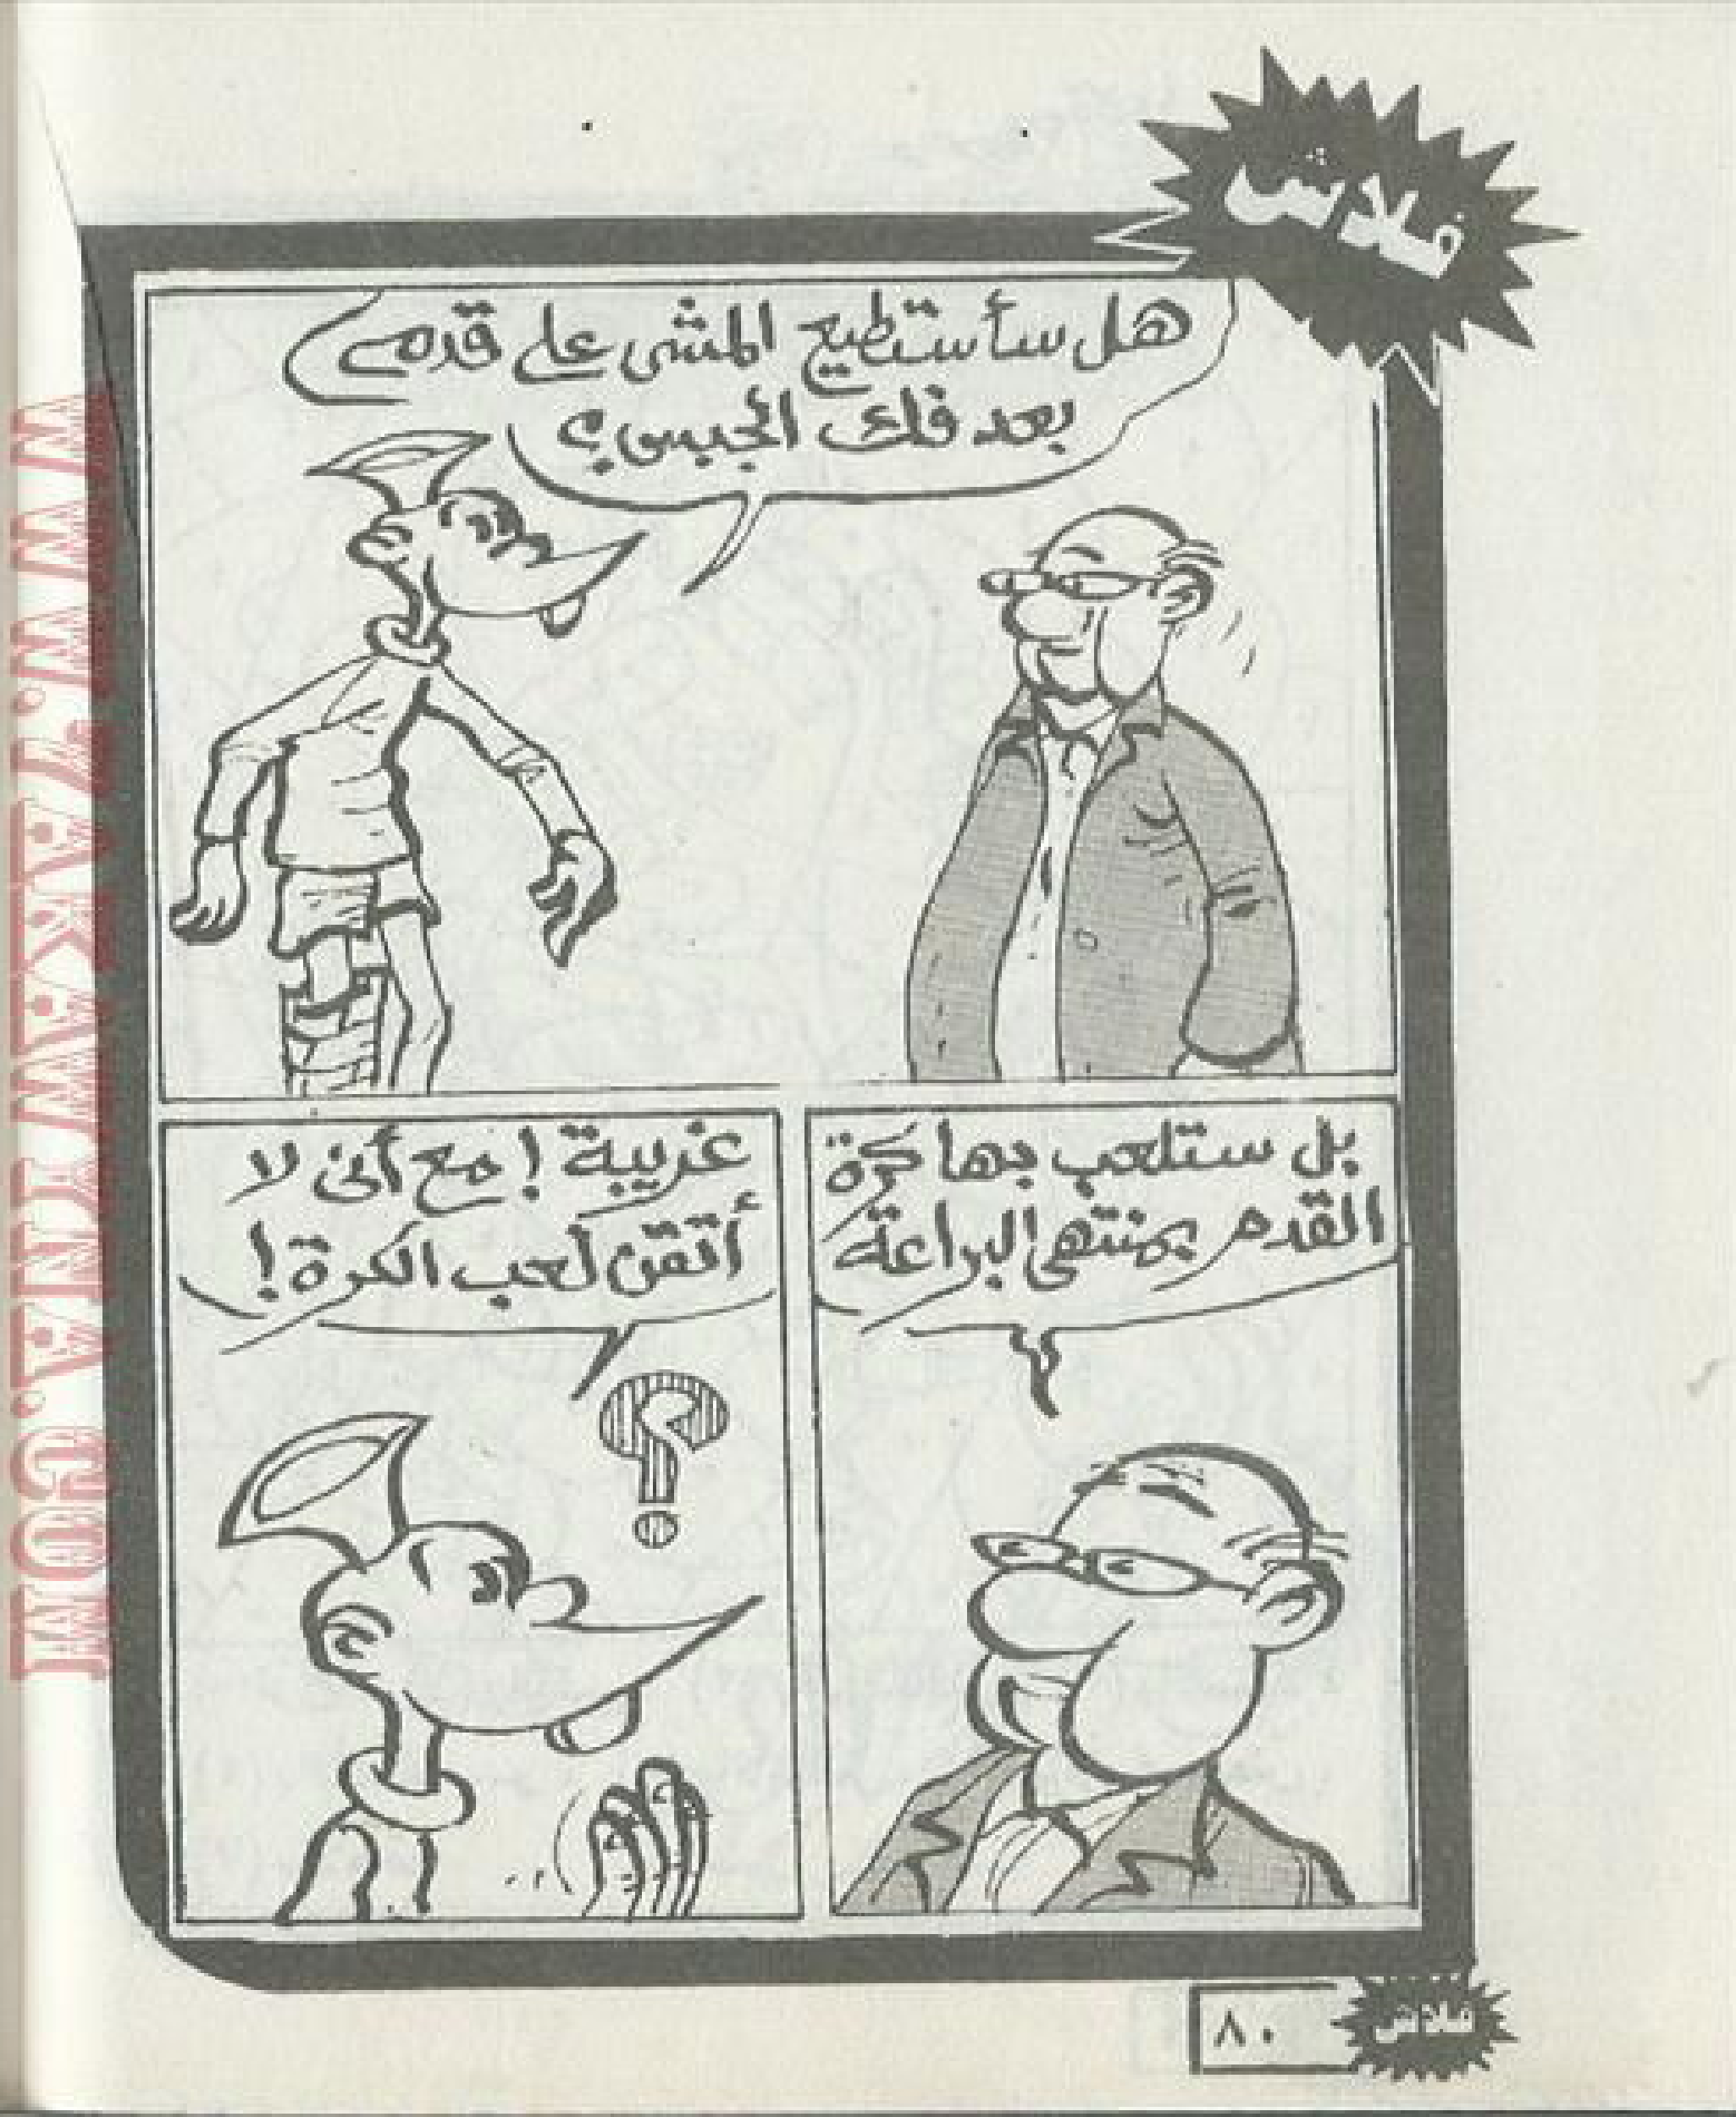 فلاش
هل سأستطيع المشى على قدمى
بعد فك الجبس؟
بل ستلعب بها كرة
القدم بمنتهى البراعة
غريبة! مع أنى لا
أتقن لعب الكرة!
?
٨٠
فلاش
WWW.ZAKAWTNA.COM